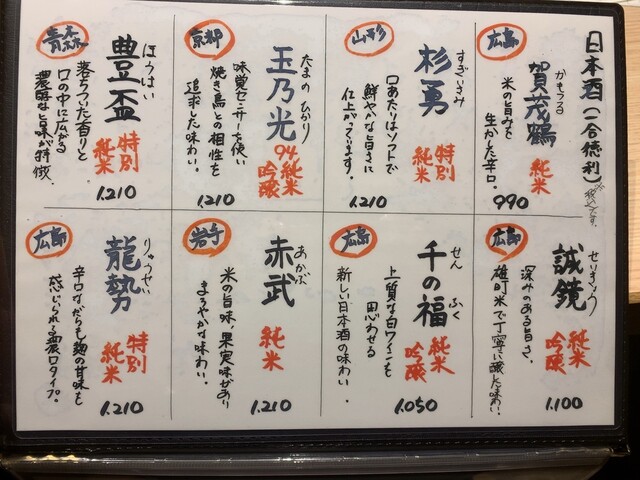 日本酒(二合徳利)
税込です。
広島
かもつる
賀茂鶴
純米
米の旨みを
生かした辛口。
990
山形
すぎいさみ
杉勇
特別
純米
口あたりはソフトで
鮮やかな旨さに
仕上がっています。
1.210
京都
たまのひかり
玉乃光
94
純米
吟醸
味覚センサーを使い
焼き鳥との相性を
追求した味わい。
1.210
青森
ほうはい
豊盃
特別
純米
落ちついた香りと
口の中に広がる
濃醇な旨味が特徴.
1.210
広島
せいきょう
誠鏡
純米
吟醸
深みのある旨さ、
雄町米で丁寧に醸した味わい.
1.100
広島
せんふく
千の福
純米
吟醸
上質な白ワインを
思わせる
新しい日本酒の味わい.
1.050
岩手
あかぶ
赤武
純米
米の旨味、果実味があり
まろやかな味わい.
1.210
広島
りゅうせい
龍勢
特別
純米
辛口ながらも麹の甘味も
感じられる濃口タイプ.
1.210